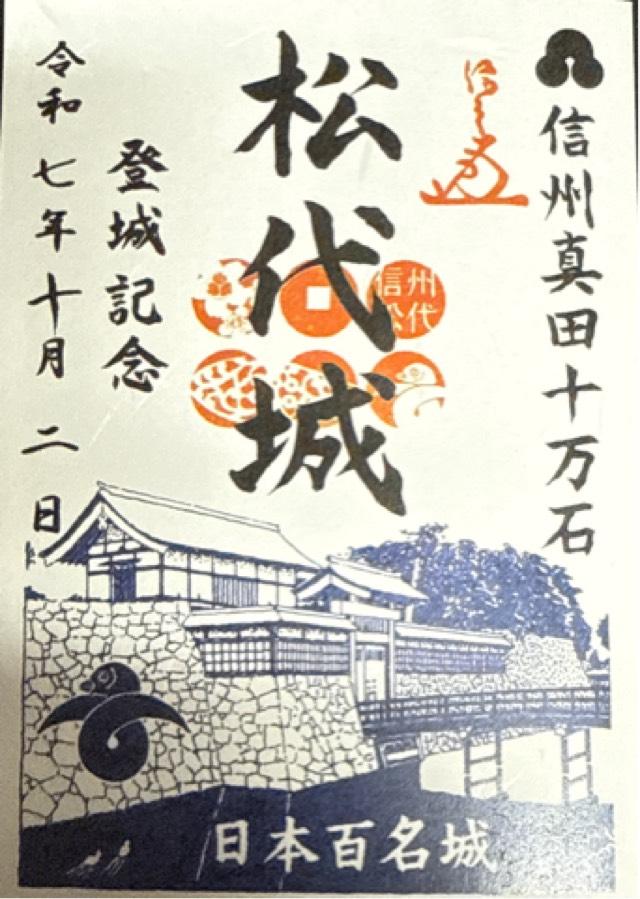 信州真田十万石
松代城
信州
松代
登城記念
令和七年十月二日
日本百名城